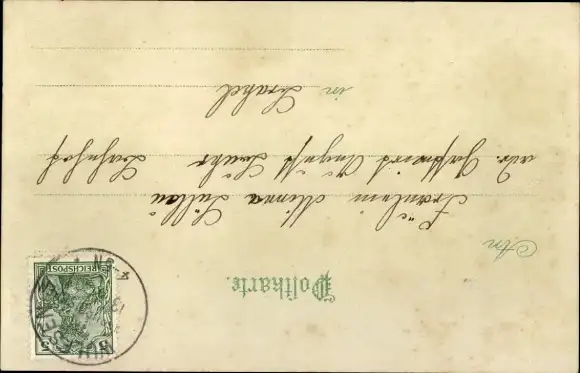 Postkarte.
An
Fräulein Minna Süllau
adr. Gastwirt August Lührs Bahnhof
in Brakel
REICHSPOST
5 5